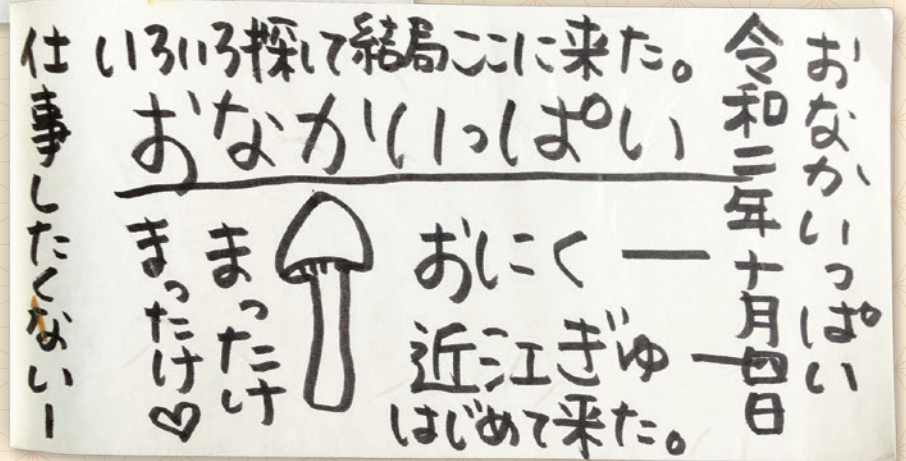 おなかいっぱい
令和二年十月四日
いろいろ探して結局ここに来た。
おなかいっぱい
おにくー
近江ぎゅー
はじめて来た。
まったけ
まったけ♡
仕事したくないー